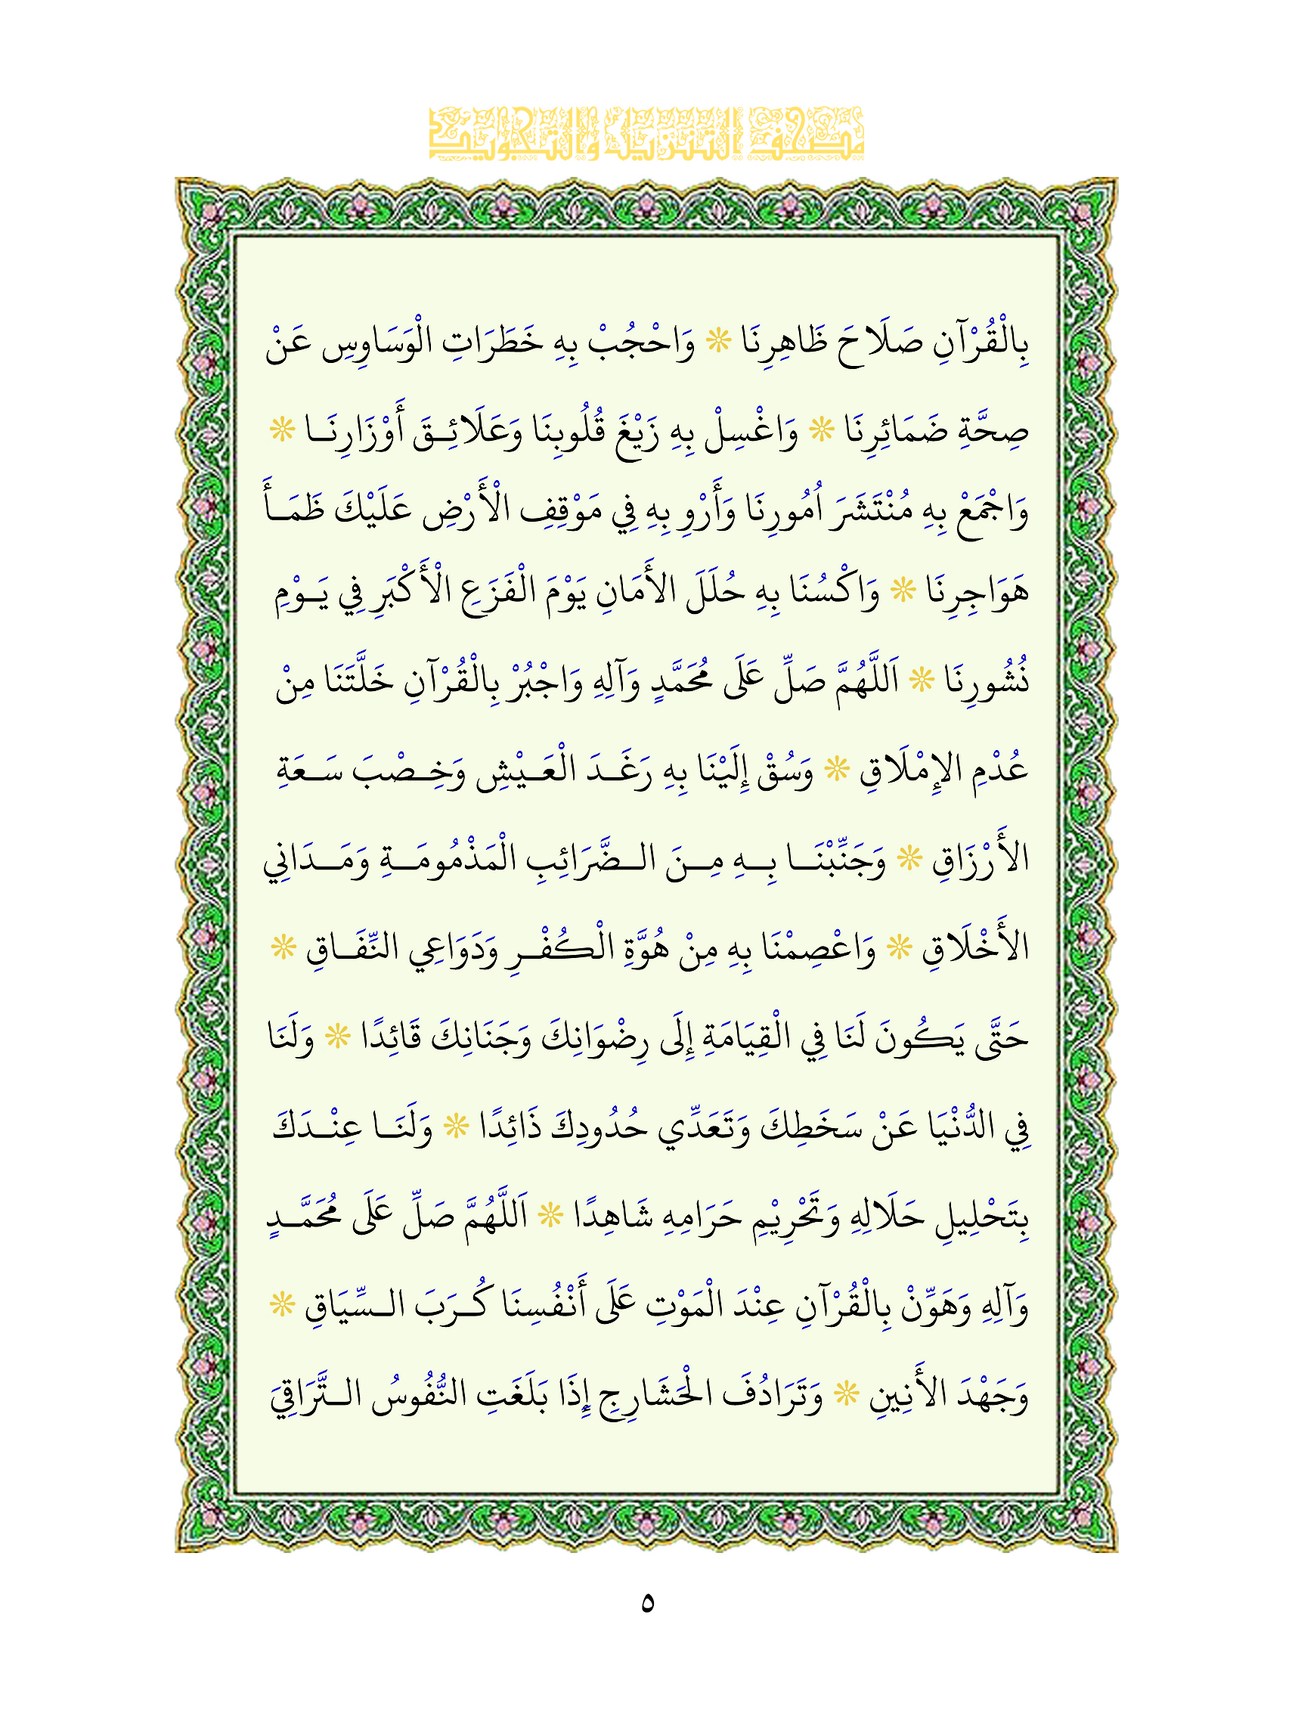 مصحف التنزيل والتبويب
بِالْقُرْآنِ صَلَاحَ ظَاهِرِنَا ❊ وَاحْجُبْ بِهِ خَطَرَاتِ الْوَسَاوِسِ عَنْ
صِحَّةِ ضَمَائِرِنَا ❊ وَاغْسِلْ بِهِ زَيْغَ قُلُوبِنَا وَعَلَائِـقَ أَوْزَارِنَـا ❊
وَاجْمَعْ بِهِ مُنْتَشَرَ اُمُورِنَا وَأَرْوِ بِهِ فِي مَوْقِفِ الْأَرْضِ عَلَيْكَ ظَمَـأَ
هَوَاجِرِنَا ❊ وَاكْسُنَا بِهِ حُلَلَ الأَمَانِ يَوْمَ الْفَزَعِ الْأَكْبَرِ فِي يَـوْمِ
نُشُورِنَا ❊ اَللَّهُمَّ صَلِّ عَلَى مُحَمَّدٍ وَآلِهِ وَاجْبُرْ بِالْقُرْآنِ خَلَّتَنَا مِنْ
عُدْمِ الإِمْلَاقِ ❊ وَسُقْ إِلَيْنَا بِهِ رَغَـدَ الْعَـيْشِ وَخِـصْبَ سَـعَةِ
الأَرْزَاقِ ❊ وَجَنِّبْنَـا بِـهِ مِـنَ الـضَّرَائِبِ الْمَذْمُومَـةِ وَمَـدَانِي
الأَخْلَاقِ ❊ وَاعْصِمْنَا بِهِ مِنْ هُوَّةِ الْكُفْـرِ وَدَوَاعِي النِّفَـاقِ ❊
حَتَّى يَكُونَ لَنَا فِي الْقِيَامَةِ إِلَى رِضْوَانِكَ وَجَنَانِكَ قَائِدًا ❊ وَلَنَا
فِي الدُّنْيَا عَنْ سَخَطِكَ وَتَعَدِّي حُدُودِكَ ذَائِدًا ❊ وَلَنَـا عِنْـدَكَ
بِتَحْلِيلِ حَلَالِهِ وَتَحْرِيْمِ حَرَامِهِ شَاهِدًا ❊ اَللَّهُمَّ صَلِّ عَلَى مُحَمَّـدٍ
وَآلِهِ وَهَوِّنْ بِالْقُرْآنِ عِنْدَ الْمَوْتِ عَلَى أَنْفُسِنَا كُـرَبَ الـسِّيَاقِ ❊
وَجَهْدَ الأَنِينِ ❊ وَتَرَادُفَ الْحَشَارِجِ إِذَا بَلَغَتِ النُّفُوسُ الـتَّرَاقِيَ
٥